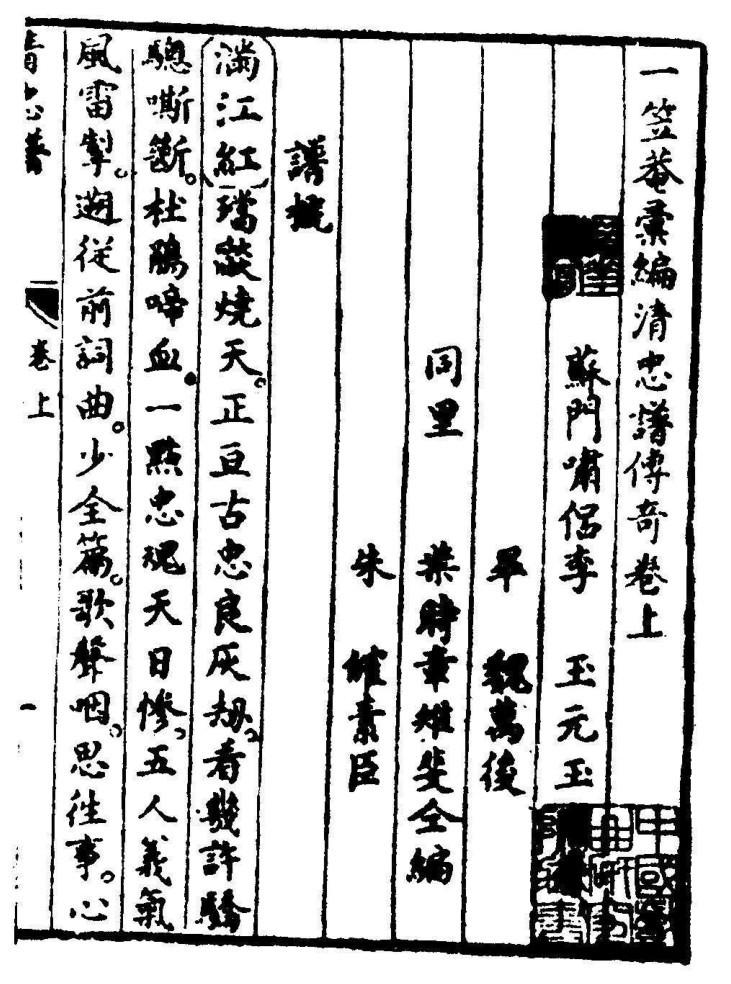 一笠菴彙編清忠譜傳奇卷上
蘇門嘯侶李 玉元玉
畢 魏萬後
同里 葉時章雉斐仝編
朱 㿥素臣
譜概
滿江紅 璫燄燒天。正亘古忠良灰刼。看幾許驕
驄嘶斷。杜鵑啼血。一點忠魂天日慘。五人義氣
風雷掣。遡從前詞曲。少全篇。歌聲咽。思往事。心
清忠譜
卷上
一